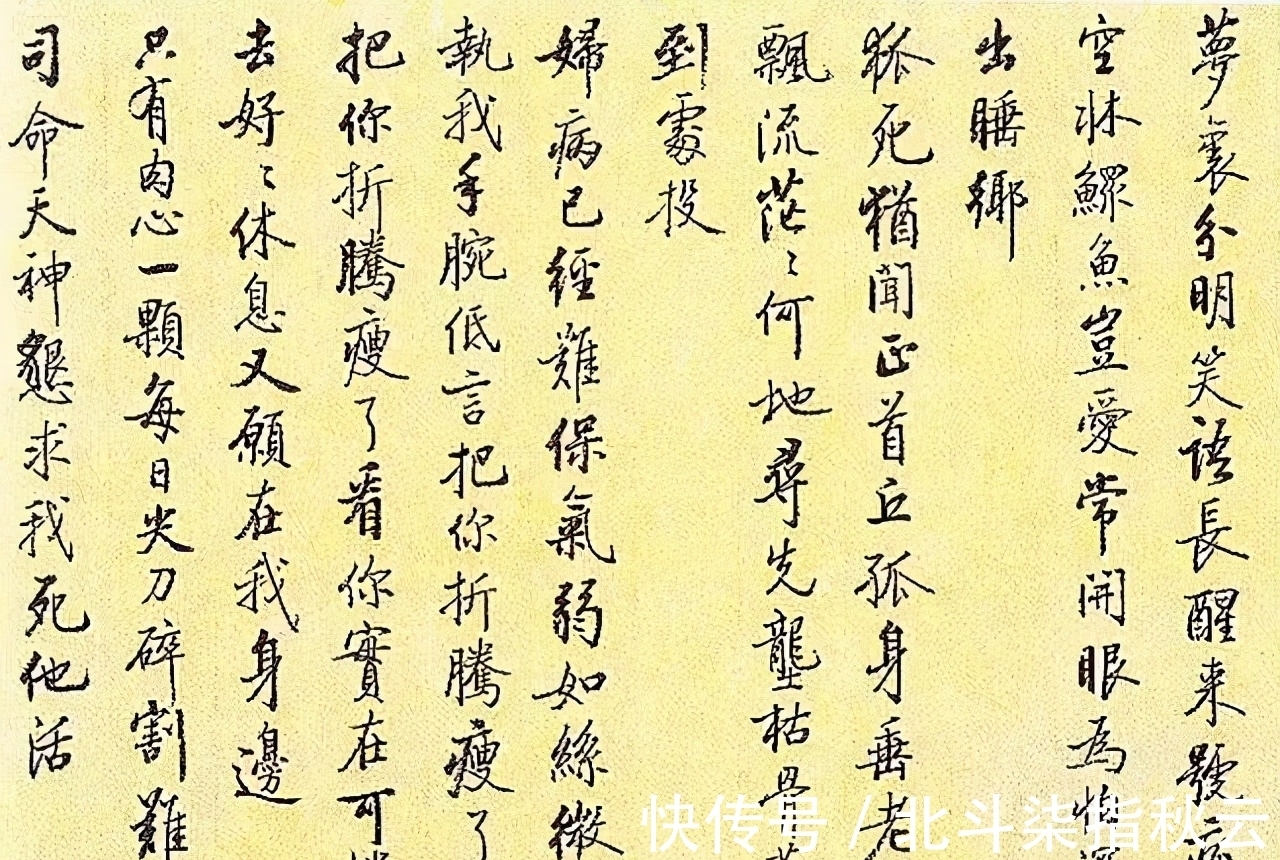 夢裏分明笑語長醒来號
空牀鰥魚豈愛常開眼為
出睡鄉
狐死猶聞正首丘孤身垂老
飄流茫〻何地尋先壟枯骨
到處投
婦病已經難保氣弱如絲微
執我手腕低言把你折騰瘦了
把你折騰瘦了看你實在可
去好〻休息又願在我身邊
只有肉心一顆每日尖刀碎割難
司命天神懇求我死他活
快传号 / 北斗柒指秋云